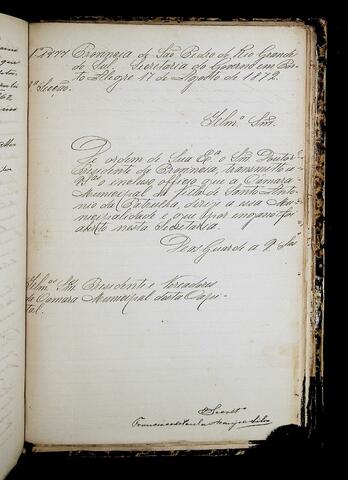 Provincia de São Pedro do Rio Grande
do Sul. Secretaria do Governo em Por-
to Alegre 17 de Agosto de 1872.
Secção.
Illmos. Snres.
De ordem de Sua Exa. o Snr. Doutor
Presidente da Provincia, transmitto a
V.Sas. o incluso officio que a Camara
Municipal da Villa de Santo Anto-
nio da Patrulha, dirije a essa Mu-
nicipalidade e que por engano foi
aberto nesta Secretaria.
Deos Guarde a V. Sas.
Illmos. Snrs. Presidente e Vereadores
da Camara Municipal desta Capi-
tal.